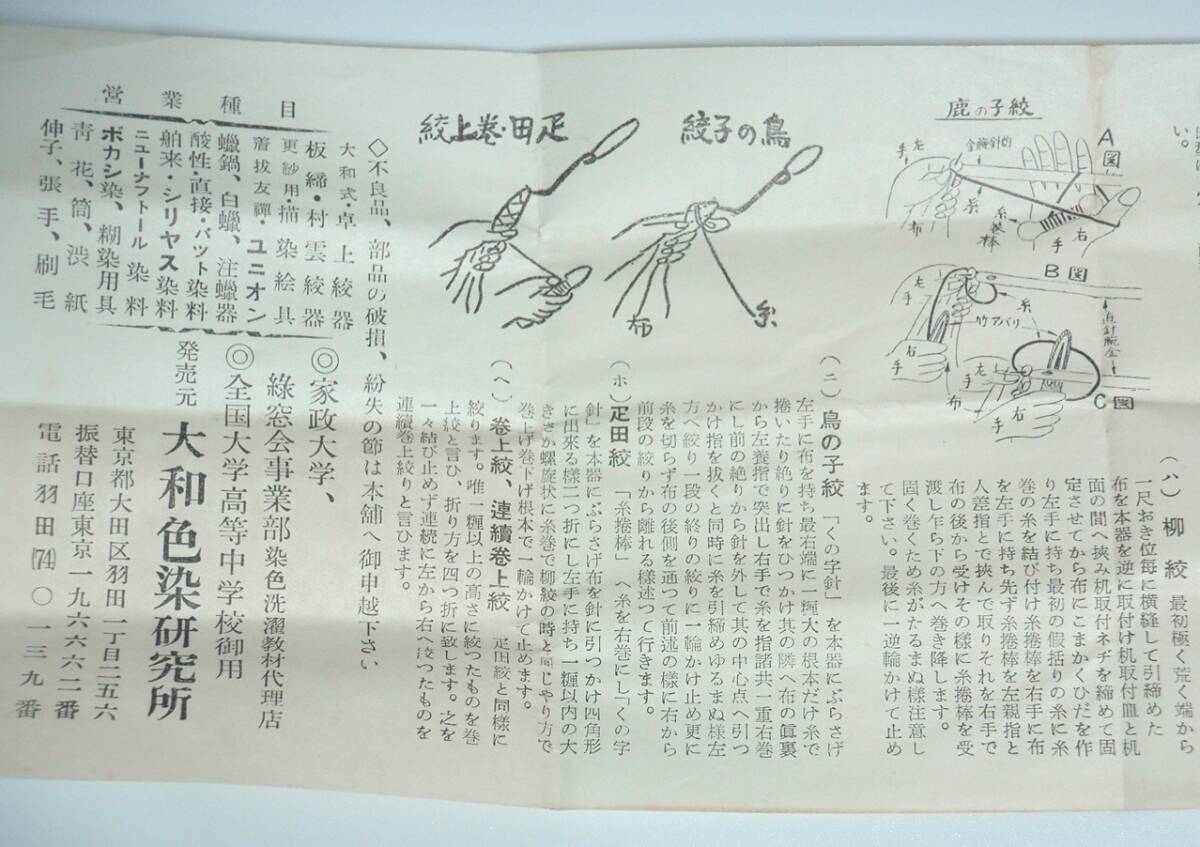 い。
鹿の子絞
A図
金腕針(直)
左手
糸
布
糸巻棒
右手
B図
左手
糸
竹アバリ
右手
布
右手
C図
鳥の子絞
布
糸
疋田・巻上絞
(ハ) 柳絞 最初極く荒く端から
一尺おき位毎に横縫して引締めた
布を本器を逆に取付け机取付皿と机
面の間へ挟み机取付ネヂを締めて固
定させてから布にこまかくひだを作
り左手に持ち最初の假括りの糸に糸
巻の糸を結び付け糸捲棒を右手に布
を左手に持ち先ず糸捲棒を左親指と
人差指とで挾んで取りそれを右手で
布の後から受けその様に糸捲棒を受
渡し乍ら下の方へ巻き降します。
固く巻くため糸がたるまぬ様注意し
て下さい。最後に一逆輪かけて止め
ます。
(ニ) 鳥の子絞 「くの字針」を本器にぶらさげ
左手に布を持ち最右端に一糎大の根本だけ糸で
捲いたり絶りに針をひつかけ其の隣へ布の眞裏
から左薬指で突出し右手で糸を指諸共一重右巻
にし前の絶りから針を外して其の中心点へ引つ
かけ指を抜くと同時に糸を引締めゆるまぬ様左
方へ絞り一段の終りの絞りに一輪かけ止め更に
糸を切らず布の後側を通つて前述の様に右から
前段の絞りから離れる様述つて行きます。
(ホ) 疋田絞 「糸捲棒」へ糸を右巻にし「くの字
針」を本器にぶらさげ布を針に引つかけ四角形
に出来る様二つ折にし左手に持ち一糎以内の大
きさか螺旋状に糸巻で柳絞の時と同じやり方で
巻上げ巻下げ根本で一輪かけて止めます。
(ヘ) 巻上絞、連續巻上絞 疋田絞と同様に
絞ります。唯一糎以上の高さに絞つたものを巻
上絞と言ひ、折り方を四つ折に致します。之を
一々結び止めず連続に左から右へ絞つたものを
連續巻上絞りと言ひます。
◇不良品、部品の破損、紛失の節は本舗へ御申越下さい
◎家政大学、
緑窓会事業部染色洗濯教材代理店
◎全国大学高等中学校御用
発売元 大和色染研究所
東京都大田区羽田一丁目二五六
振替口座東京一九六六六二番
電話羽田(74)〇一三九番
営業種目
大和式・卓上絞器
板締・村雲絞器
更紗用・描染絵具
着抜友禪・ユニオン
蠟鍋、白蠟、注蠟器
酸性・直接・バット染料
舶来・シリヤス染料
ニューナフトール染料
ボカシ染、糊染用具
青花、筒、渋紙
伸子、張手、刷毛